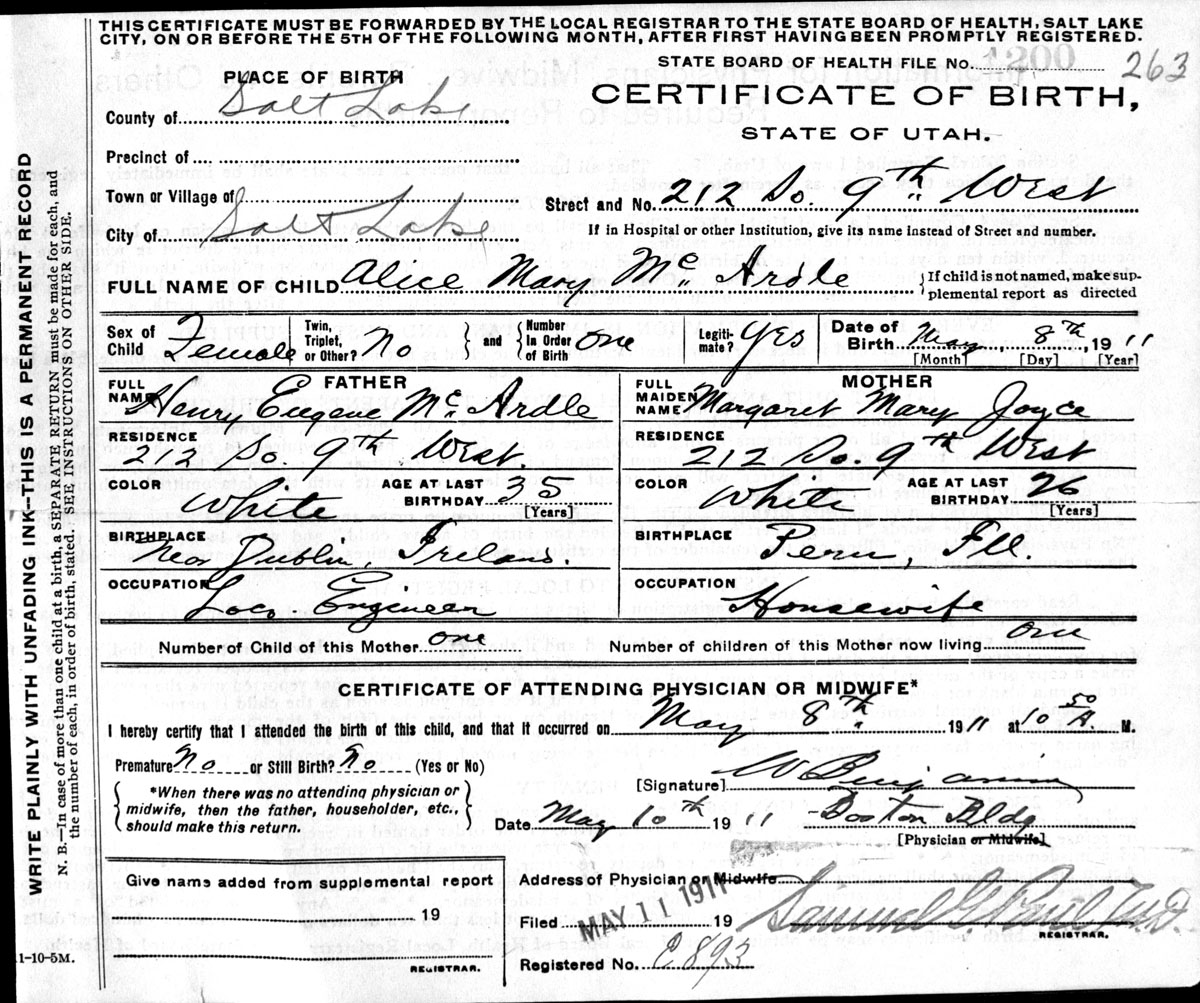 THIS CERTIFICATE MUST BE FORWARDED BY THE LOCAL REGISTRAR TO THE STATE BOARD OF HEALTH, SALT LAKE
CITY, ON OR BEFORE THE 5TH OF THE FOLLOWING MONTH, AFTER FIRST HAVING BEEN PROMPTLY REGISTERED.
STATE BOARD OF HEALTH FILE No. 263
PLACE OF BIRTH
CERTIFICATE OF BIRTH,
STATE OF UTAH.
County of Salt Lake
Precinct of
Town or Village of
Street and No. 212 So. 9th West
City of Salt Lake
If in Hospital or other Institution, give its name instead of Street and number.
FULL NAME OF CHILD Alice Mary Mc Ardle
If child is not named, make sup-
plemental report as directed
Sex of Child Female
Twin, Triplet, or Other? No
and
Number In Order of Birth one
Legiti-mate? Yes
Date of Birth May 8th 1911
[Month] [Day] [Year]
FATHER
FULL NAME Henry Eugene Mc Ardle
RESIDENCE
212 So. 9th West.
COLOR White
AGE AT LAST BIRTHDAY 35
[Years]
BIRTHPLACE
Near Dublin, Ireland.
OCCUPATION
Loco. Engineer
MOTHER
FULL MAIDEN NAME Margaret Mary Joyce
RESIDENCE
212 So. 9th West
COLOR White
AGE AT LAST BIRTHDAY 26
[Years]
BIRTHPLACE
Peru, Ill.
OCCUPATION
Housewife
Number of Child of this Mother one
Number of children of this Mother now living one
CERTIFICATE OF ATTENDING PHYSICIAN OR MIDWIFE*
I hereby certify that I attended the birth of this child, and that it occurred on May 8th 1911 at 10 A M.
Premature No or Still Birth? No (Yes or No)
*When there was no attending physician or
midwife, then the father, householder, etc.,
should make this return.
[Signature] W Benjamin
Date May 10th 1911 Boston Bldg
[Physician or Midwife]
Give name added from supplemental report
19
REGISTRAR.
Address of Physician or Midwife
Filed MAY 11 1911 19
Samuel G. Paul M.D.
REGISTRAR.
Registered No.
1-10-5M.
WRITE PLAINLY WITH UNFADING INK—THIS IS A PERMANENT RECORD
N. B.—In case of more than one child at a birth, a SEPARATE RETURN must be made for each, and
the number of each, in order of birth, stated. (SEE INSTRUCTIONS ON OTHER SIDE.